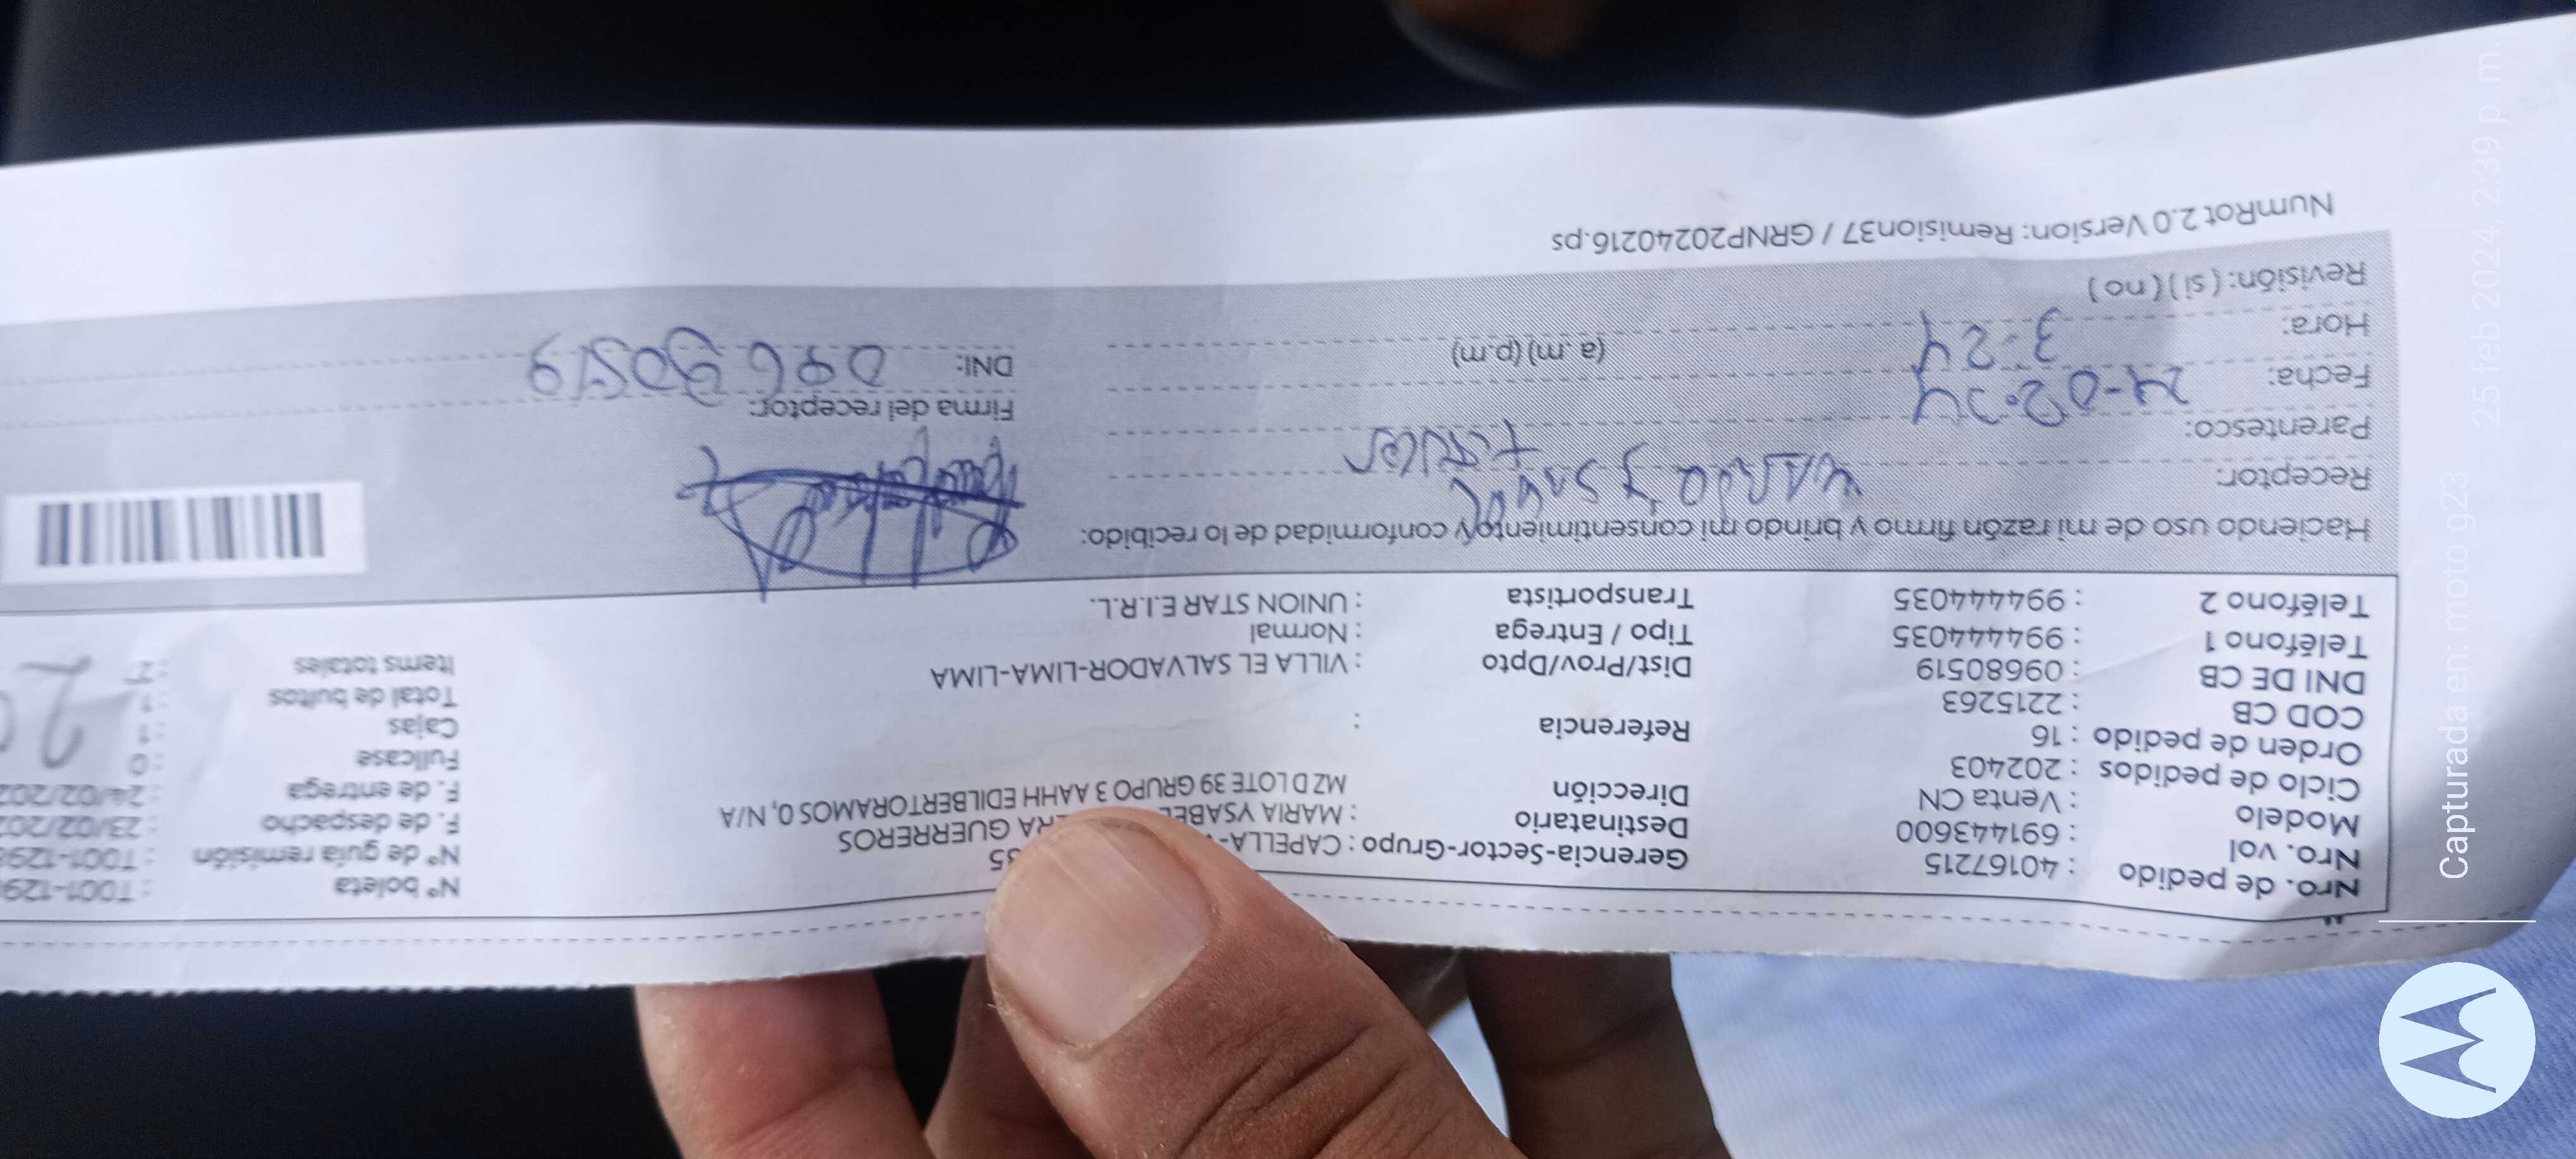 Nro. de pedido : 40167215
Nro. vol : 691443600
Modelo : Venta CN
Ciclo de pedidos : 202403
Orden de pedido : 16
COD CB : 2215263
DNI DE CB : 09680519
Teléfono 1 : 994444035
Teléfono 2 : 994444035
Gerencia-Sector-Grupo : CAPELLA-
Destinatario : MARIA YSABEL GUERREROS
Dirección MZ D LOTE 39 GRUPO 3 AAHH EDILBERTORAMOS 0, N/A
Referencia :
Dist/Prov/Dpto : VILLA EL SALVADOR-LIMA-LIMA
Tipo / Entrega : Normal
Transportista : UNION STAR E.I.R.L.
N° boleta : T001-129
N° de guía remisión : T001-129
F. de despacho : 23/02/202
F. de entrega : 24/02/202
Fullcase : 0
Cajas : 1
Total de bultos : 1
Items totales : 27
Haciendo uso de mi razón firmo y brindo mi consentimiento y conformidad de lo recibido:
Receptor:
Parentesco:
Fecha: 24-02-24
Hora: 3-24 (a.m) (p.m)
Revisión: ( si ) ( no )
Firma del receptor:
DNI: 09680519
NumRot 2.0 Version: Remision37 / GRNP20240216.ps
Capturada en: moto g23 25 feb 2024, 2:39 p. m.